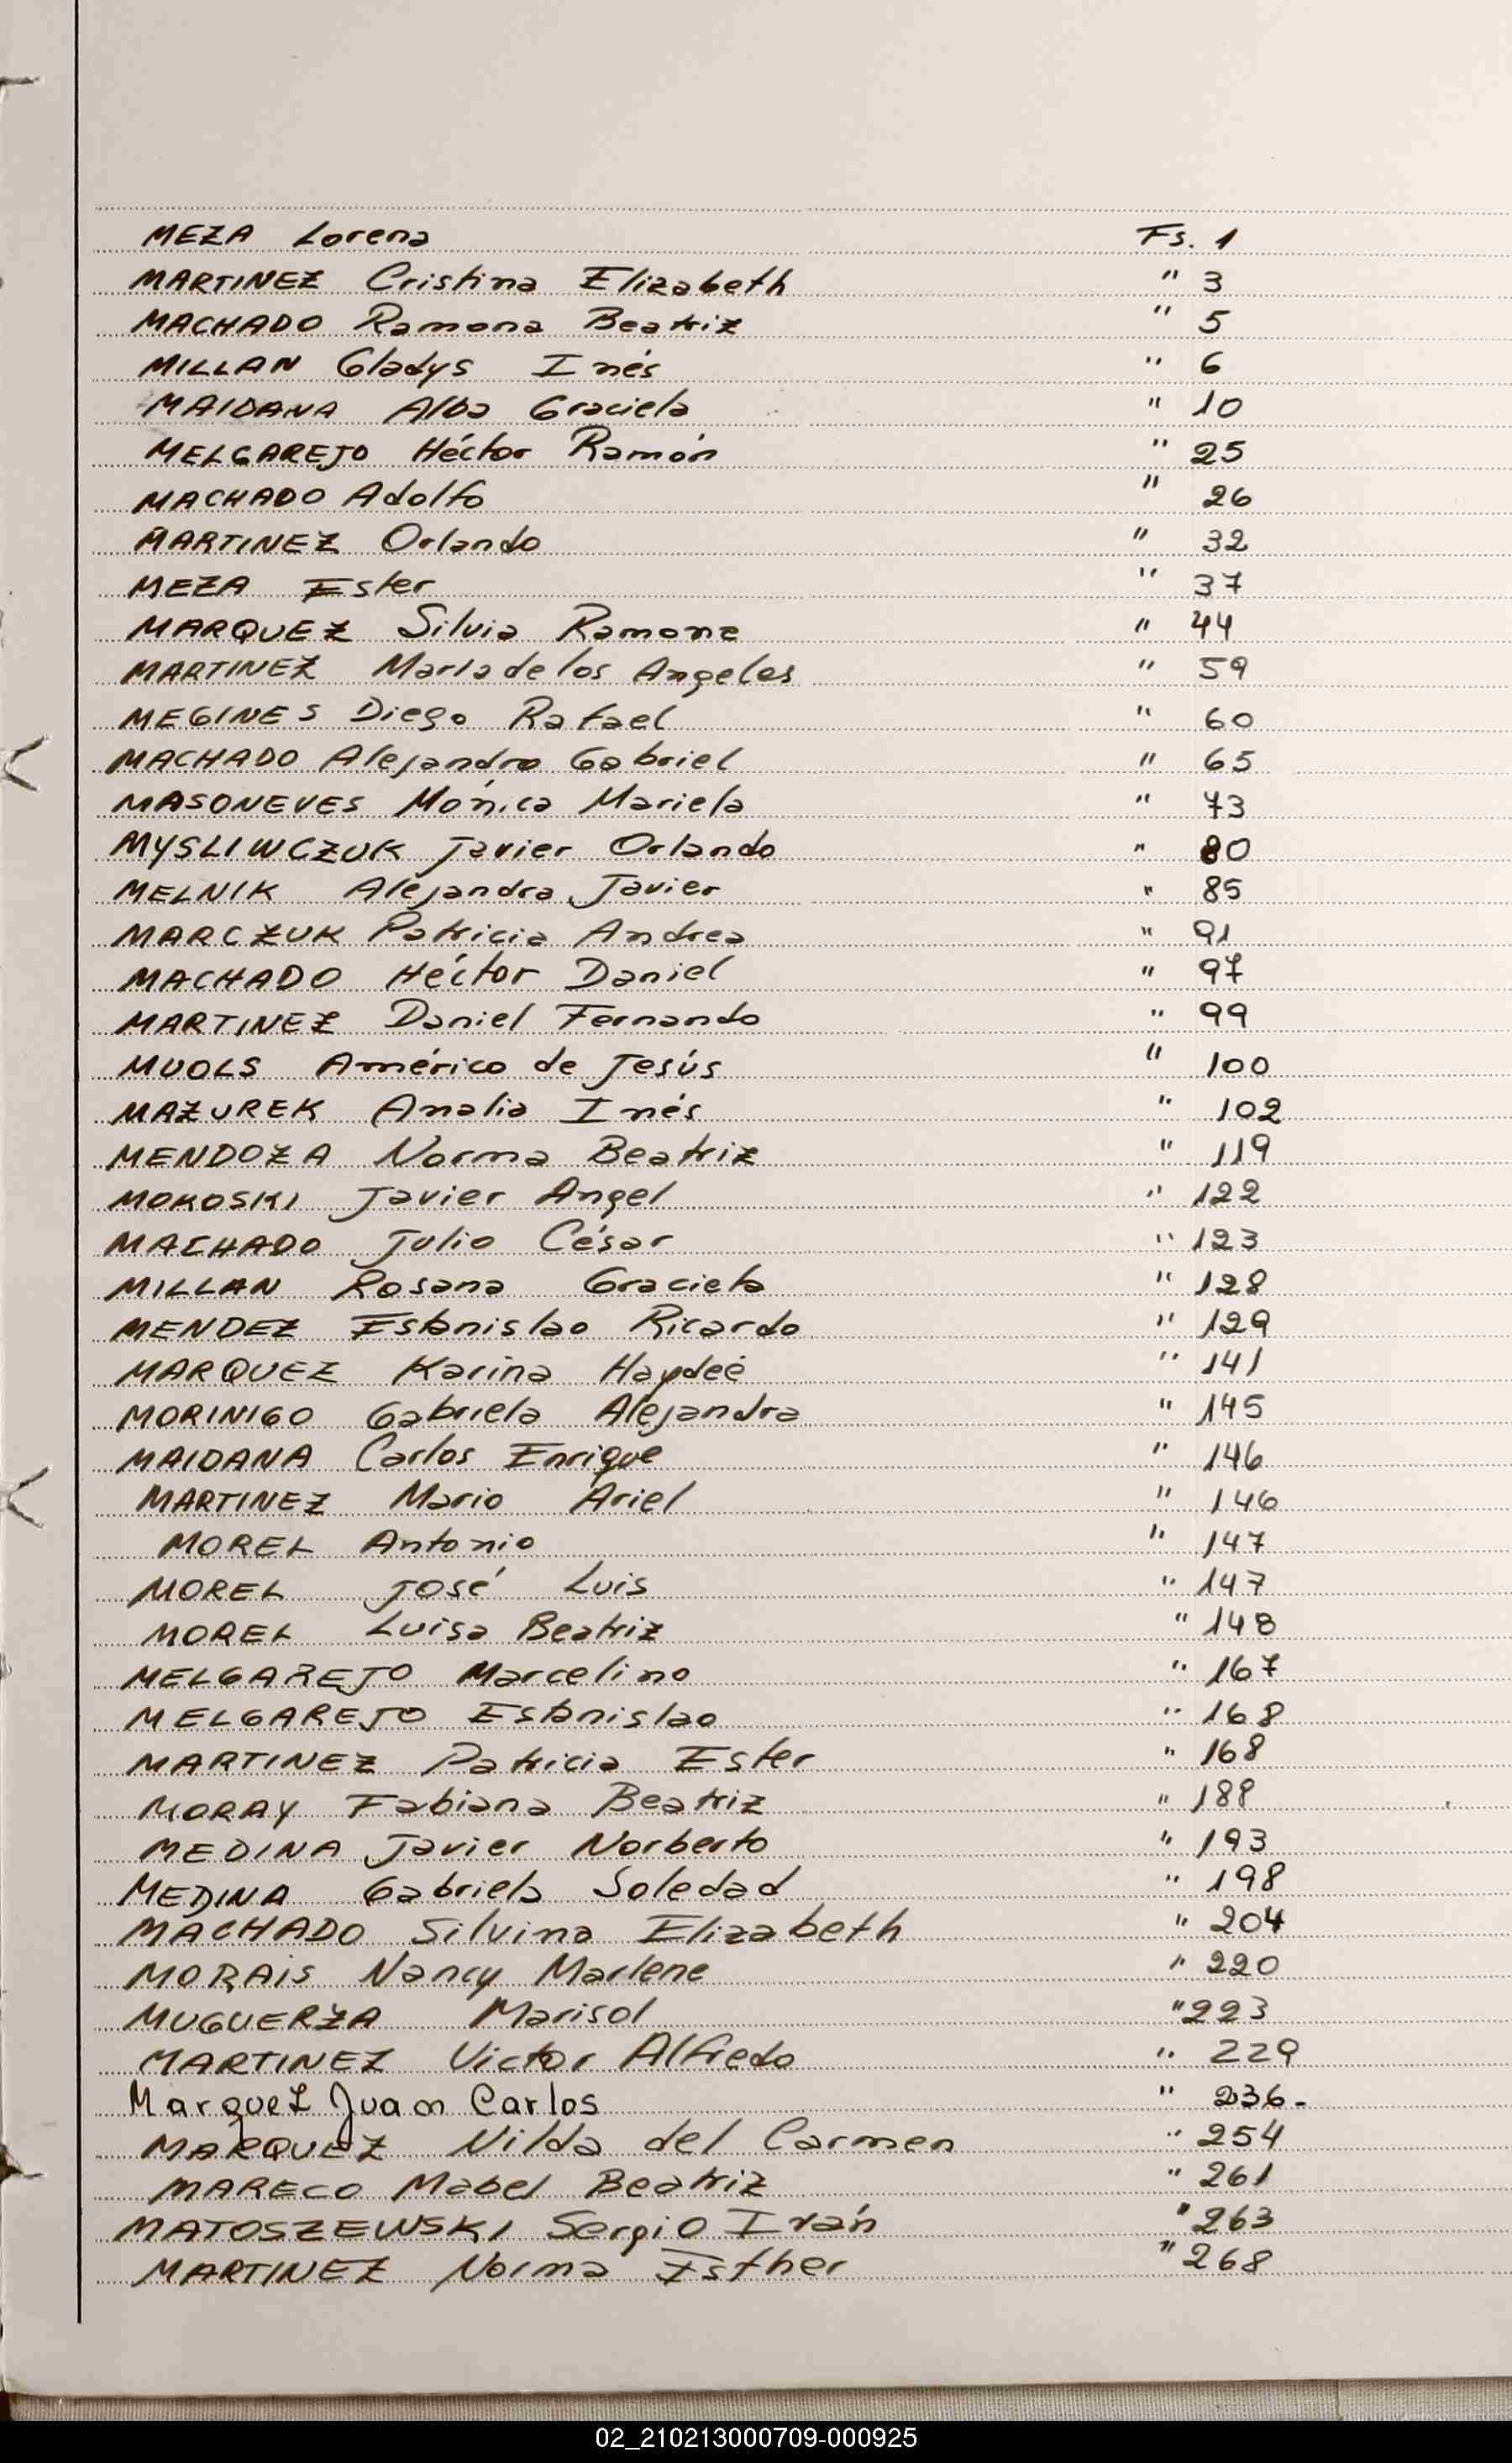 MEZA Lorena Fs. 1
MARTINEZ Cristina Elizabeth " 3
MACHADO Ramona Beatriz " 5
MILLAN Gladys Inés " 6
MAIDANA Alba Graciela " 10
MELGAREJO Héctor Ramón " 25
MACHADO Adolfo " 26
MARTINEZ Orlando " 32
MEZA Ester " 37
MARQUEZ Silvia Ramona " 44
MARTINEZ María de los Angeles " 59
MEGINES Diego Rafael " 60
MACHADO Alejandro Gabriel " 65
MASONEVES Mónica Mariela " 73
MYSLIWCZUK Javier Orlando " 80
MELNIK Alejandra Javier " 85
MARCZUK Patricia Andrea " 91
MACHADO Héctor Daniel " 97
MARTINEZ Daniel Fernando " 99
MUOLS Américo de Jesús " 100
MAZUREK Analia Inés " 102
MENDOZA Norma Beatriz " 119
MOKOSKI Javier Angel " 122
MACHADO Julio César " 123
MILLAN Rosana Graciela " 128
MENDEZ Estanislao Ricardo " 129
MARQUEZ Karina Haydeé " 141
MORINIGO Gabriela Alejandra " 145
MAIDANA Carlos Enrique " 146
MARTINEZ Mario Ariel " 146
MOREL Antonio " 147
MOREL José Luis " 147
MOREL Luisa Beatriz " 148
MELGAREJO Marcelino " 167
MELGAREJO Estanislao " 168
MARTINEZ Patricia Ester " 168
MORAY Fabiana Beatriz " 188
MEDINA Javier Norberto " 193
MEDINA Gabriela Soledad " 198
MACHADO Silvina Elizabeth " 204
MORAIS Nancy Marlene " 220
MUGUERZA Marisol " 223
MARTINEZ Victor Alfredo " 229
Marquez Juan Carlos " 236.
MARQUEZ Nilda del Carmen " 254
MARECO Mabel Beatriz " 261
MATOSZEWSKI Sergio Iván " 263
MARTINEZ Norma Esther " 268
02_210213000709-000925